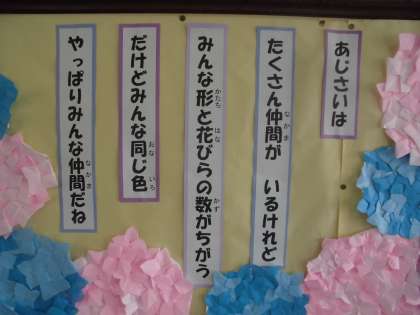 あじさいは
たくさん仲間が　いるけれど
みんな形と花びらの数がちがう
だけどみんな同じ色
やっぱりみんな仲間だね